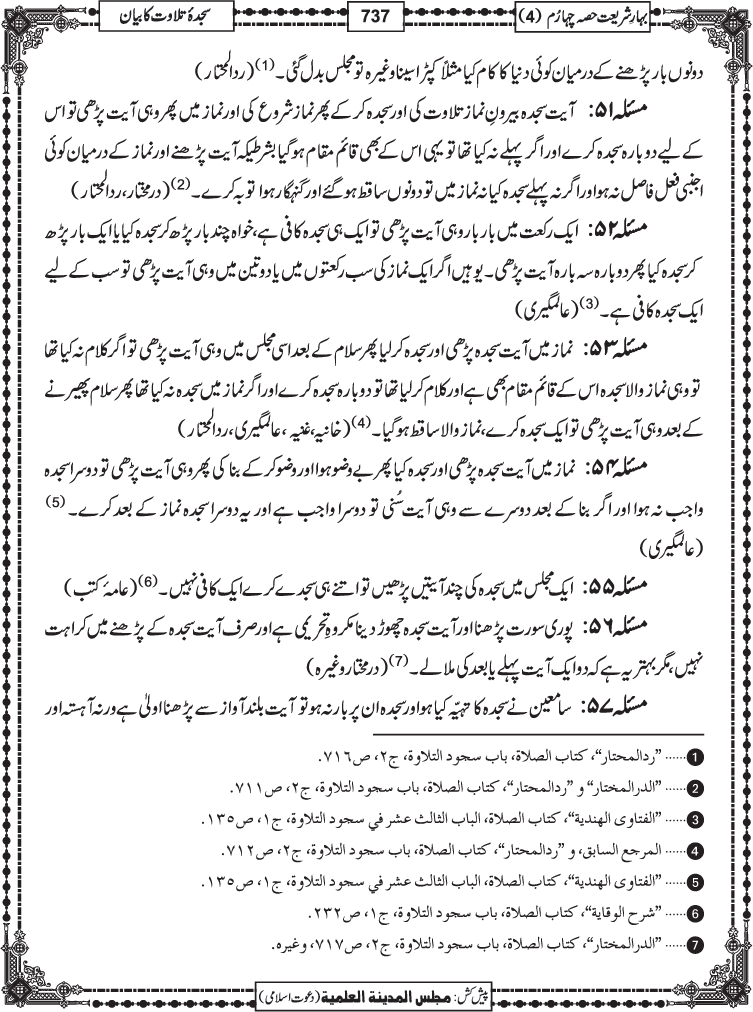 بہارِ شریعت حصہ چہارم (4)
737
سجدۂ تلاوت کا بیان
دونوں بار پڑھنے کے درمیان کوئی دنیا کا کام کیا مثلاً کپڑا سینا وغیرہ تو مجلس بدل گئی۔(1) (ردالمحتار)
مسئلہ ۵۱: آیت سجدہ بیرون نماز تلاوت کی اور سجدہ کر کے پھر نماز شروع کی اور نماز میں پھر وہی آیت پڑھی تو اس
کے لیے دوبارہ سجدہ کرے اور اگر پہلے نہ کیا تھا تو یہی اس کے بھی قائم مقام ہوگیا بشرطیکہ آیت پڑھنے اور نماز کے درمیان کوئی
اجنبی فعل فاصل نہ ہو اور اگر نہ پہلے سجدہ کیا نہ نماز میں تو دونوں ساقط ہوگئے اور گنہگار ہوا توبہ کرے۔(2) (درمختار، ردالمحتار)
مسئلہ ۵۲: ایک رکعت میں بار بار وہی آیت پڑھی تو ایک ہی سجدہ کافی ہے، خواہ چند بار پڑھ کر سجدہ کیا یا ایک بار پڑھ
کر سجدہ کیا پھر دوبارہ سہ بارہ آیت پڑھی۔ یوہیں اگر ایک نماز کی سب رکعتوں میں یا دو تین میں وہی آیت پڑھی تو سب کے لیے
ایک سجدہ کافی ہے۔(3) (عالمگیری)
مسئلہ ۵۳: نماز میں آیت سجدہ پڑھی اور سجدہ کرلیا پھر سلام کے بعد اسی مجلس میں وہی آیت پڑھی تو اگر کلام نہ کیا تھا
تو وہی نماز والا سجدہ اس کے قائم مقام بھی ہے اور کلام کرلیا تھا تو دوبارہ سجدہ کرے اور اگر نماز میں سجدہ نہ کیا تھا پھر سلام پھیرنے
کے بعد وہی آیت پڑھی تو ایک سجدہ کرے، نماز والا ساقط ہوگیا۔(4) (خانیہ، غنیہ، عالمگیری، ردالمحتار)
مسئلہ ۵۴: نماز میں آیت سجدہ پڑھی اور سجدہ کیا پھر بے وضو ہوا اور وضو کر کے بنا کی پھر وہی آیت پڑھی تو دوسرا سجدہ
واجب نہ ہوا اور اگر بنا کے بعد دوسرے سے وہی آیت سُنی تو دوسرا واجب ہے اور یہ دوسرا سجدہ نماز کے بعد کرے۔(5)
(عالمگیری)
مسئلہ ۵۵: ایک مجلس میں سجدہ کی چند آیتیں پڑھیں تو اتنے ہی سجدے کرے ایک کافی نہیں۔(6) (عامۂ کتب)
مسئلہ ۵۶: پوری سورت پڑھنا اور آیت سجدہ چھوڑ دینا مکروہِ تحریمی ہے اور صرف آیت سجدہ کے پڑھنے میں کراہت
نہیں، مگر بہتر یہ ہے کہ دو ایک آیت پہلے یا بعد کی ملالے۔(7) (درمختار وغیرہ)
مسئلہ ۵۷: سامعین نے سجدہ کا تہیّہ کیا ہو اور سجدہ ان پر بار نہ ہو تو آیت بلند آواز سے پڑھنا اولیٰ ہے ورنہ آہستہ اور
1 ...... ”ردالمحتار“، کتاب الصلاة، باب سجود التلاوة، ج٢، ص٧١٦.
2 ...... ”الدرالمختار“ و ”ردالمحتار“، کتاب الصلاة، باب سجود التلاوة، ج٢، ص٧١١.
3 ...... ”الفتاوی الهندية“، کتاب الصلاة، الباب الثالث عشر في سجود التلاوة، ج١، ص١٣٥.
4 ...... المرجع السابق، و ”ردالمحتار“، کتاب الصلاة، باب سجود التلاوة، ج٢، ص٧١٢.
5 ...... ”الفتاوی الهندية“، کتاب الصلاة، الباب الثالث عشر في سجود التلاوة، ج١، ص١٣٥.
6 ...... ”شرح الوقاية“، کتاب الصلاة، باب سجود التلاوة، ج١، ص٢٣٢.
7 ...... ”الدرالمختار“، کتاب الصلاة، باب سجود التلاوة، ج٢، ص٧١٧، وغیره.
پیش کش: مجلس المدینة العلمیة (دعوت اسلامی)